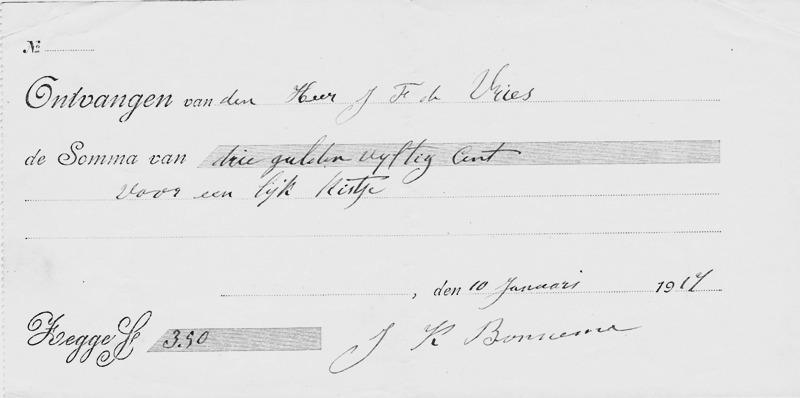 No
Ontvangen van den Heer J F de Vries
de Somma van drie gulden vyftig Cent
voor een lijk Kistje
, den 10 Januari 1917
Zegge ƒ 3.50
J K Bonnema